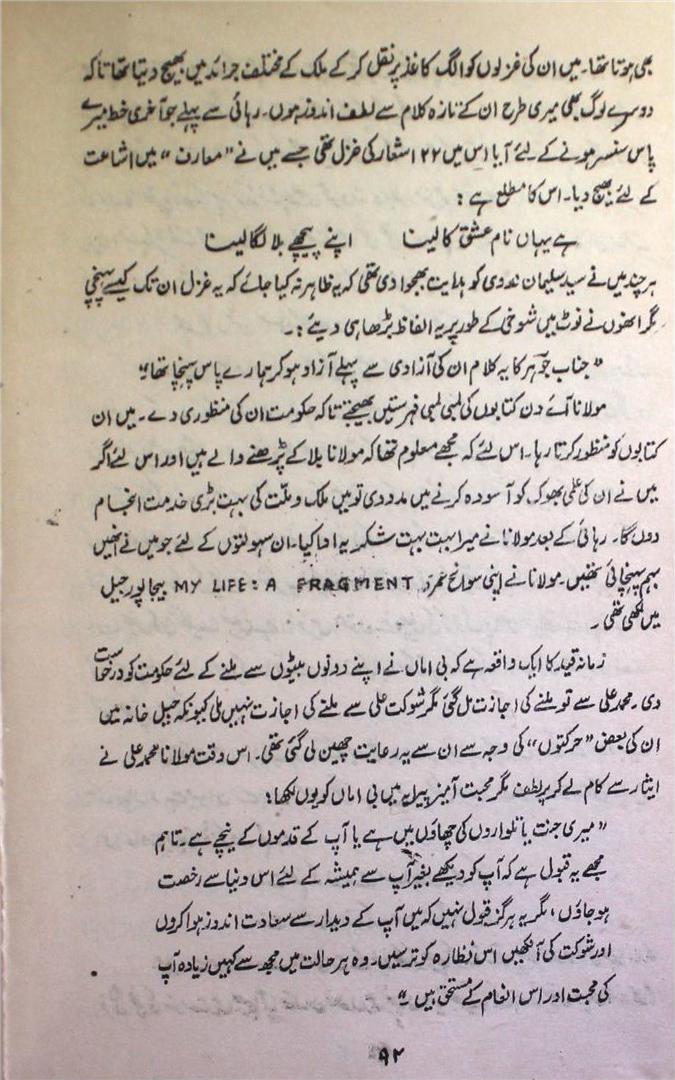 بھی ہوتا تھا۔ میں ان کی غزلوں کو الگ کاغذ پر نقل کر کے ملک کے مختلف جرائد میں بھیج دیتا تھا تاکہ
دوسرے لوگ بھی میری طرح ان کے تازہ کلام سے لطف اندوز ہوں۔ رہائی سے پہلے جو آخری خط میرے
پاس سنسر ہونے کے لئے آیا اس میں ۲۲ اشعار کی غزل تھی جسے میں نے "معارف" میں اشاعت
کے لئے بھیج دیا۔ اس کا مطلع ہے :
ہے یہاں نام عشق کا لینا اپنے پیچھے بلا لگا لینا
ہر چند میں نے سید سلیمان ندوی کو ہدایت بھجوا دی تھی کہ یہ ظاہر نہ کیا جائے کہ یہ غزل ان تک کیسے پہنچی
مگر انھوں نے نوٹ میں شوخی کے طور پر یہ الفاظ بڑھا ہی دیئے :۔
"جناب جوہر کا یہ کلام ان کی آزادی سے پہلے آزاد ہو کر ہمارے پاس پہنچا تھا"
مولانا آئے دن کتابوں کی لمبی لمبی فہرستیں بھیجتے تاکہ حکومت ان کی منظوری دے۔ میں ان
کتابوں کو منظور کرتا رہا۔ اس لئے کہ مجھے معلوم تھا کہ مولانا بلا کے پڑھنے والے ہیں اور اس لئے اگر
میں نے ان کی علمی بھوک کو آسودہ کرنے میں مدد دی تو میں ملک و ملت کی بہت بڑی خدمت انجام
دوں گا۔ رہائی کے بعد مولانا نے میرا بہت بہت شکریہ ادا کیا۔ ان سہولتوں کے لئے جو میں نے انھیں
بہم پہنچائی تھیں۔ مولانا نے اپنی سوانح عمری MY LIFE: A FRAGMENT بیجاپور جیل
میں لکھی تھی۔
زمانۂ قید کا ایک واقعہ ہے کہ بی اماں نے اپنے دونوں بیٹوں سے ملنے کے لئے حکومت کو درخواست
دی۔ محمد علی سے تو ملنے کی اجازت مل گئی مگر شوکت علی سے ملنے کی اجازت نہیں ملی کیونکہ جیل خانہ میں
ان کی بعض "حرکتوں" کی وجہ سے ان سے یہ رعایت چھین لی گئی تھی۔ اس وقت مولانا محمد علی نے
ایثار سے کام لے کر پر لطف مگر محبت آمیز پیرایہ میں بی اماں کو یوں لکھا :
"میری جنت یا تلواروں کی چھاؤں میں ہے یا آپ کے قدموں کے نیچے ہے۔ تاہم
مجھے یہ قبول ہے کہ آپ کو دیکھے بغیر آپ سے ہمیشہ کے لئے اس دنیا سے رخصت
ہو جاؤں، مگر یہ ہرگز قبول نہیں کہ میں آپ کے دیدار سے سعادت اندوز ہوا کروں
اور شوکت کی آنکھیں اس نظارہ کو ترسیں۔ وہ ہر حالت میں مجھ سے کہیں زیادہ آپ
کی محبت اور اس انعام کے مستحق ہیں۔"
۹۲